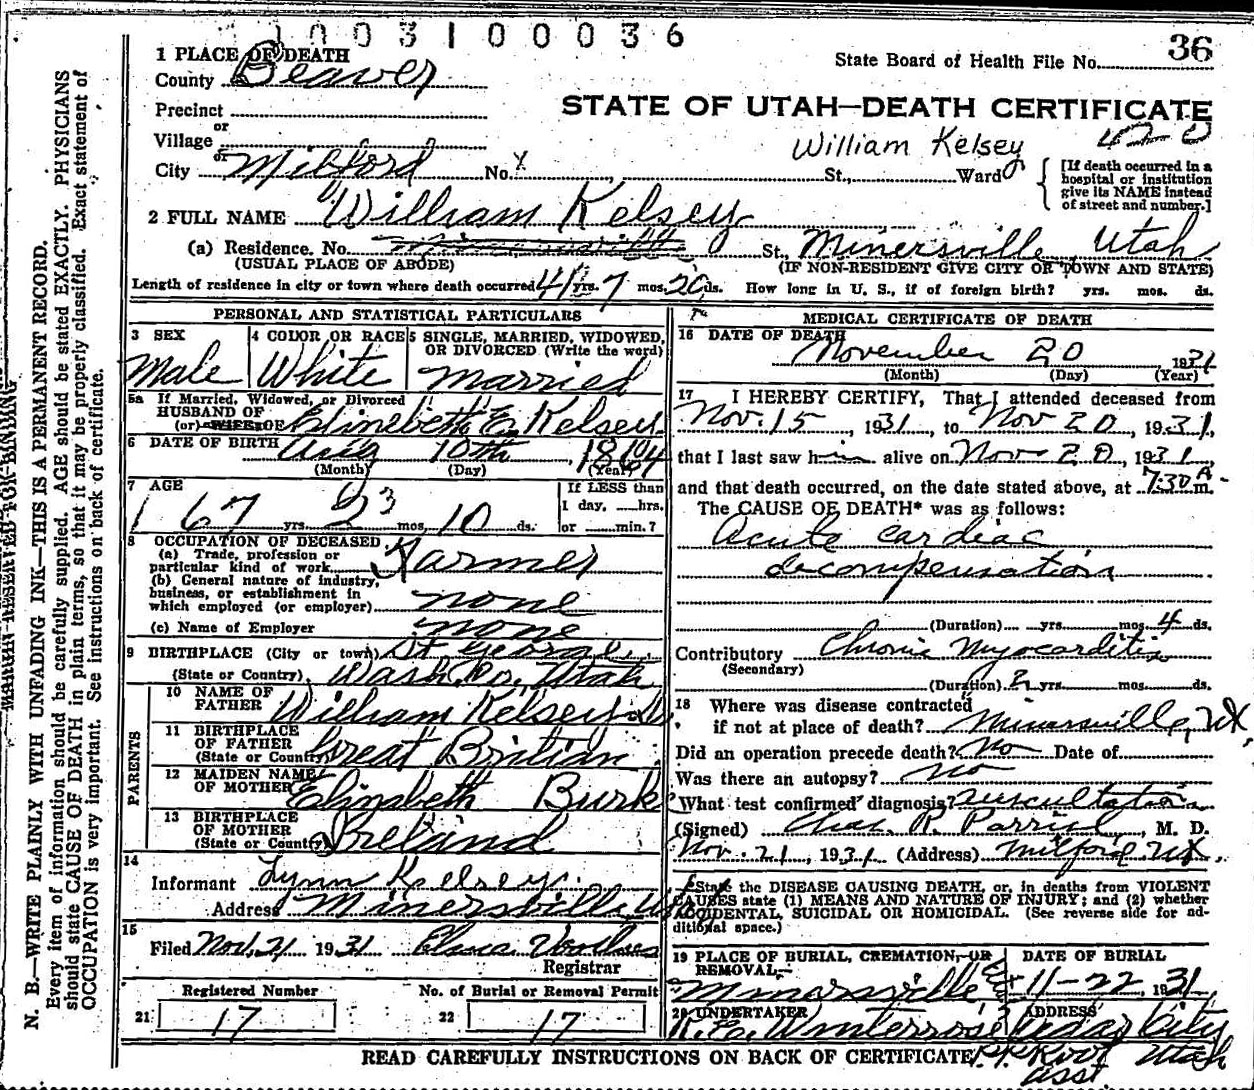 1003100036
36
1 PLACE OF DEATH
State Board of Health File No.
County Beaver
Precinct
STATE OF UTAH—DEATH CERTIFICATE
or
Village
William Kelsey
or
City Milford No. St., Ward
[If death occurred in a
hospital or institution
give its NAME instead
of street and number.]
2 FULL NAME William Kelsey
(a) Residence, No. St., Minersville, Utah
(USUAL PLACE OF ABODE) (IF NON-RESIDENT GIVE CITY OR TOWN AND STATE)
Length of residence in city or town where death occurred 41 yrs. 7 mos. 20 ds. How long in U. S., if of foreign birth? yrs. mos. ds.
PERSONAL AND STATISTICAL PARTICULARS
3 SEX
Male
4 COLOR OR RACE
White
5 SINGLE, MARRIED, WIDOWED,
OR DIVORCED (Write the word)
Married
5a If Married, Widowed, or Divorced
HUSBAND OF
(or) WIFE OF E. Kelsey
6 DATE OF BIRTH Aug 10th
(Month) (Day) (Year)
7 AGE
67 yrs. mos. 10 ds.
If LESS than
1 day, hrs.
or min.?
8 OCCUPATION OF DECEASED
(a) Trade, profession or
particular kind of work Farmer
(b) General nature of industry,
business, or establishment in
which employed (or employer) none
(c) Name of Employer none
9 BIRTHPLACE (City or town) St George,
(State or Country) Wash. Co., Utah
PARENTS
10 NAME OF
FATHER William Kelsey
11 BIRTHPLACE
OF FATHER
(State or Country) Great Britian
12 MAIDEN NAME
OF MOTHER Elizabeth Burk
13 BIRTHPLACE
OF MOTHER
(State or Country) Ireland
14
Informant Lynn Kelsey.
Address Minersville,
15
Filed Nov. 21 1931
Registrar
Registered Number
21 17
No. of Burial or Removal Permit
22 17
MEDICAL CERTIFICATE OF DEATH
16 DATE OF DEATH
November 20 1931
(Month) (Day) (Year)
17 I HEREBY CERTIFY, That I attended deceased from
Nov. 15, 1931, to Nov 20, 1931,
that I last saw him alive on Nov 20, 1931,
and that death occurred, on the date stated above, at 7:30 A m.
The CAUSE OF DEATH* was as follows:
Acute cardiac
decompensation
(Duration) yrs. mos. 4 ds.
Contributory Chronic Myocarditis
(Secondary)
(Duration) 2 yrs. mos. ds.
18 Where was disease contracted
if not at place of death? Minersville, Ut,
Did an operation precede death? No Date of
Was there an autopsy? no
What test confirmed diagnosis? auscultation
(Signed) Chas. R. Parrish, M. D.
Nov. 21, 1931 (Address) Milford, Ut.
*State the DISEASE CAUSING DEATH, or, in deaths from VIOLENT
CAUSES state (1) MEANS AND NATURE OF INJURY; and (2) whether
ACCIDENTAL, SUICIDAL OR HOMICIDAL. (See reverse side for ad-
ditional space.)
19 PLACE OF BURIAL, CREMATION, OR
REMOVAL
Minersville
DATE OF BURIAL
11-22, 1931
20 UNDERTAKER
R. E. Winterrose
ADDRESS
Cedar City,
Utah
Asst
READ CAREFULLY INSTRUCTIONS ON BACK OF CERTIFICATE
MARGIN RESERVED FOR BINDING
N. B.—WRITE PLAINLY WITH UNFADING INK—THIS IS A PERMANENT RECORD.
Every item of information should be carefully supplied. AGE should be stated EXACTLY. PHYSICIANS
should state CAUSE OF DEATH in plain terms, so that it may be properly classified. Exact statement of
OCCUPATION is very important. See instructions on back of certificate.